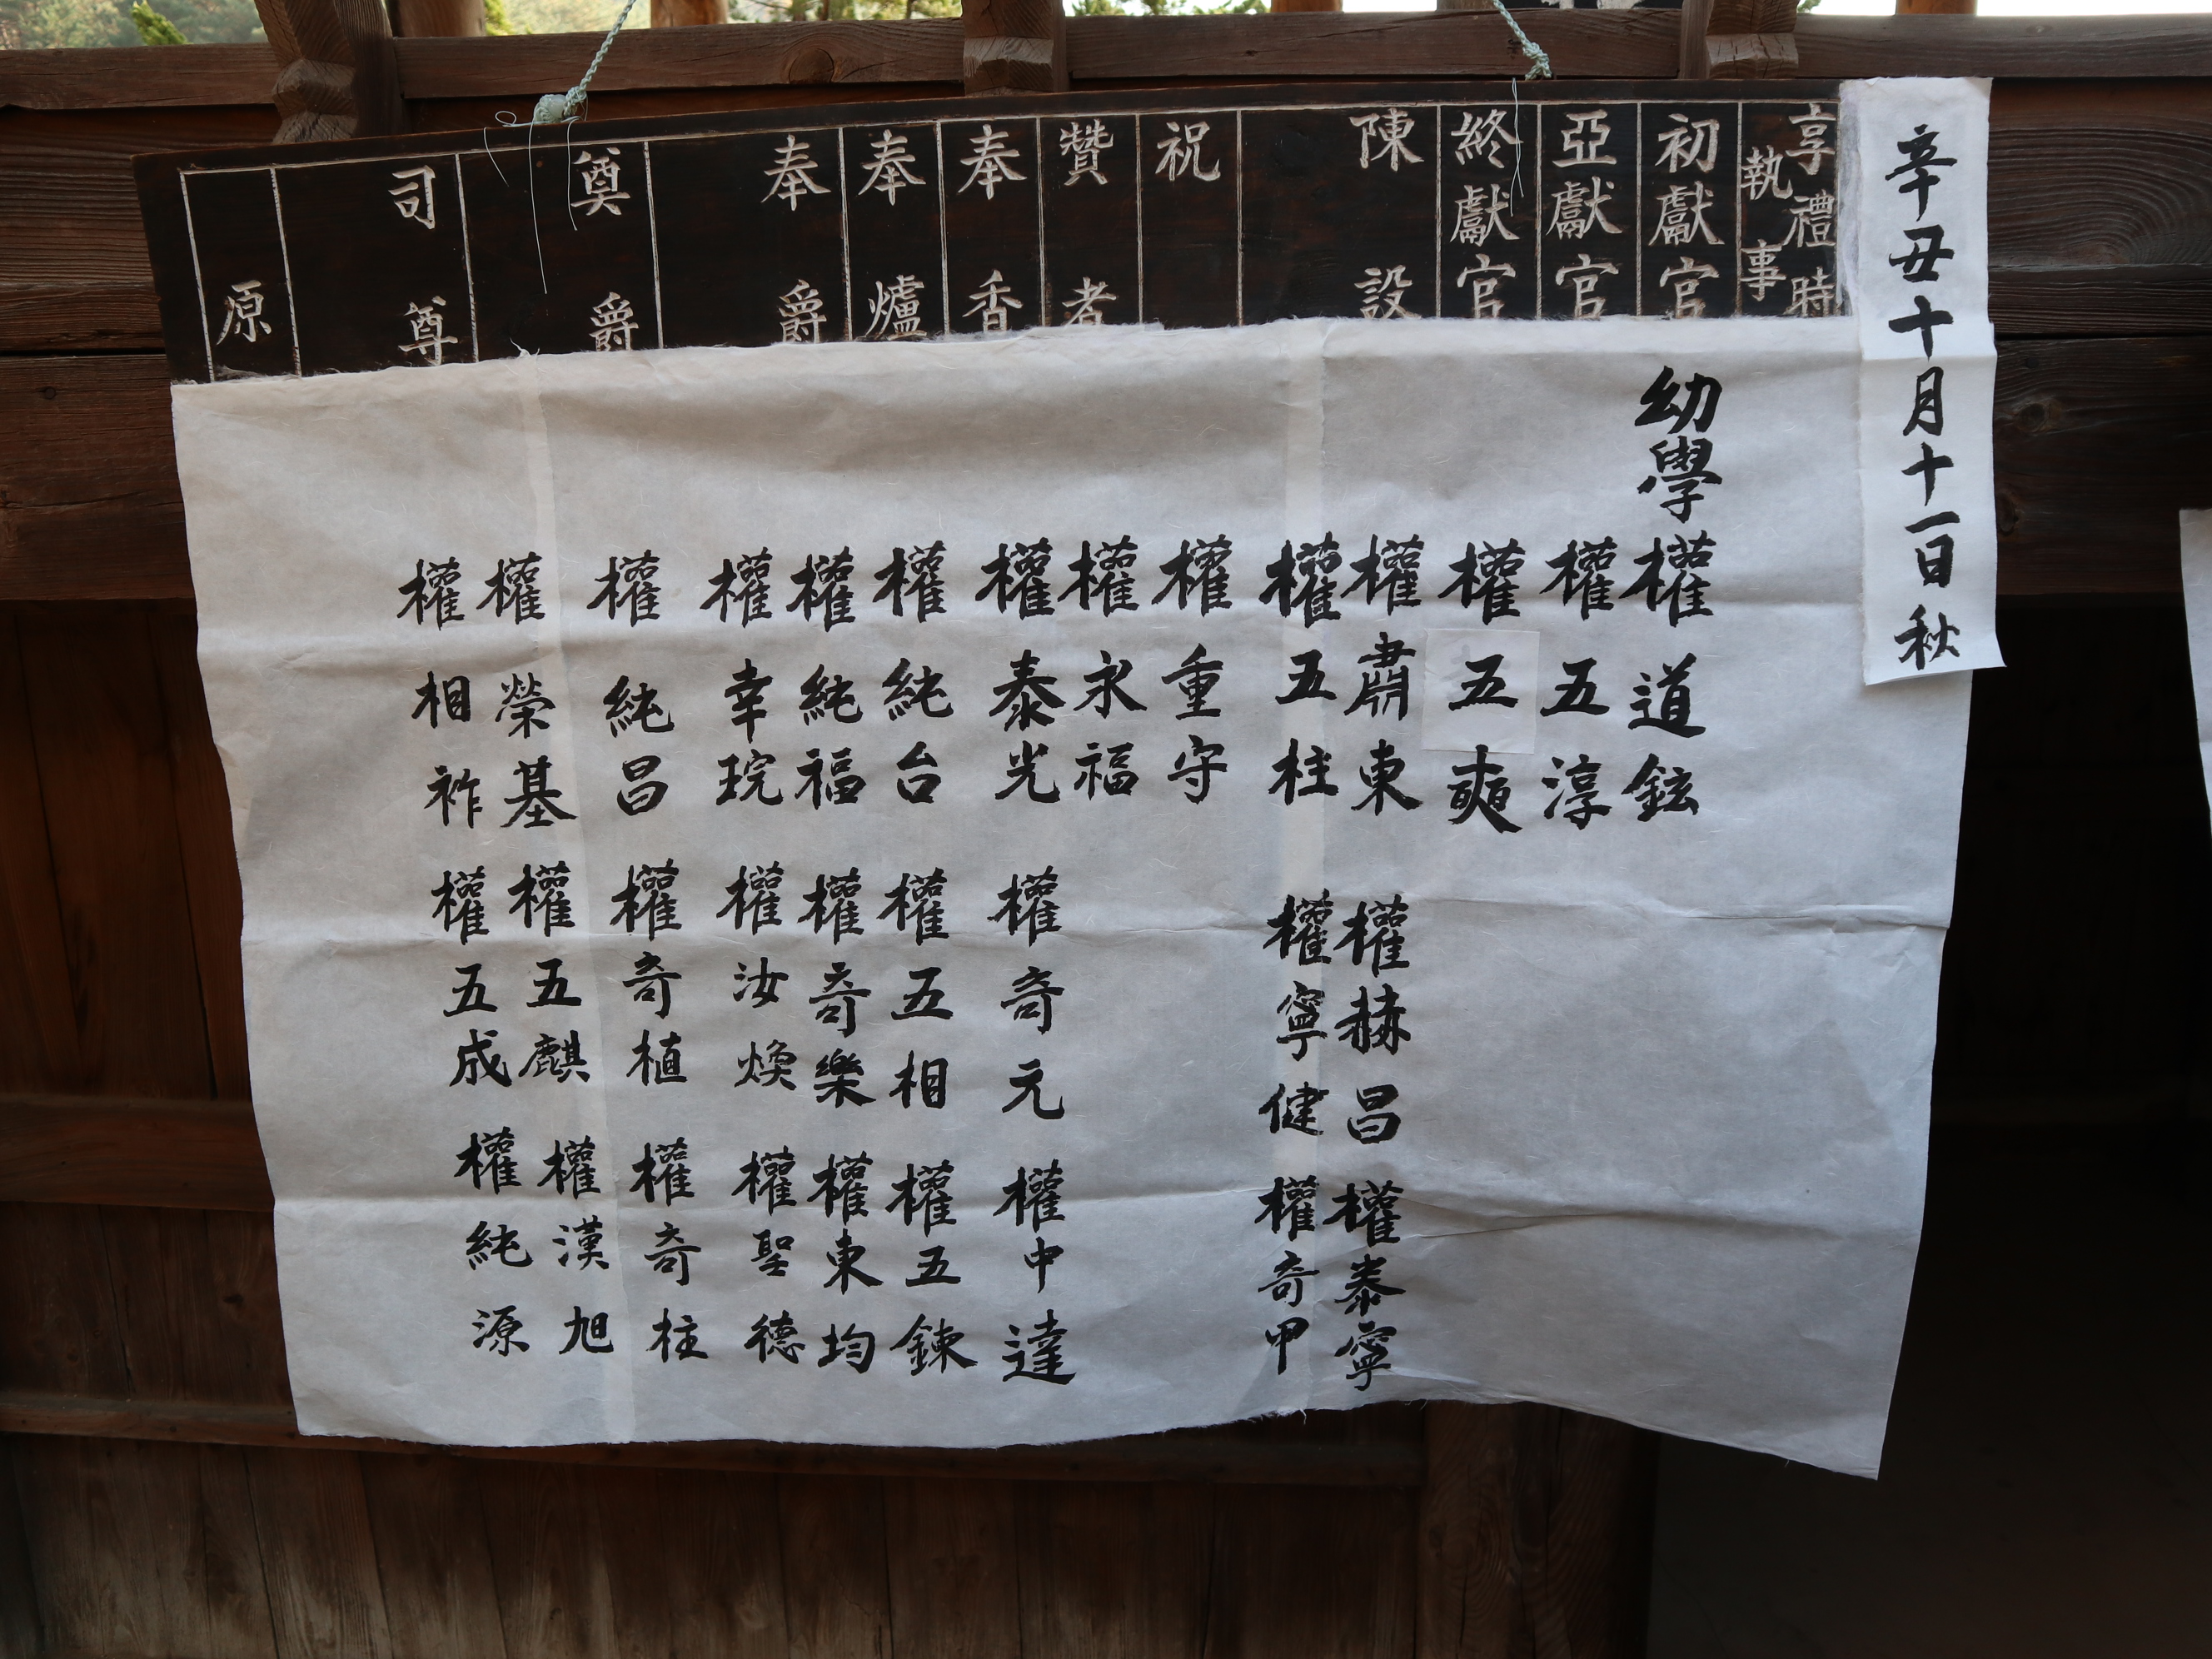 辛丑十月十一日秋
享禮時
執事
初獻官
亞獻官
終獻官
陳設
祝
贊者
奉香
奉爐
奉爵
奠爵
司尊
原
幼學權道鉉
權五淳
權五奭
權肅東 權赫昌 權泰寧
權五柱 權寧健 權奇甲
權重守
權永福
權泰光 權奇元 權中達
權純台 權五相 權五鍊
權純福 權奇樂 權東均
權幸琓 權汝煥 權聖德
權純昌 權奇植 權奇柱
權榮基 權五麒 權漢旭
權相祚 權五成 權純源